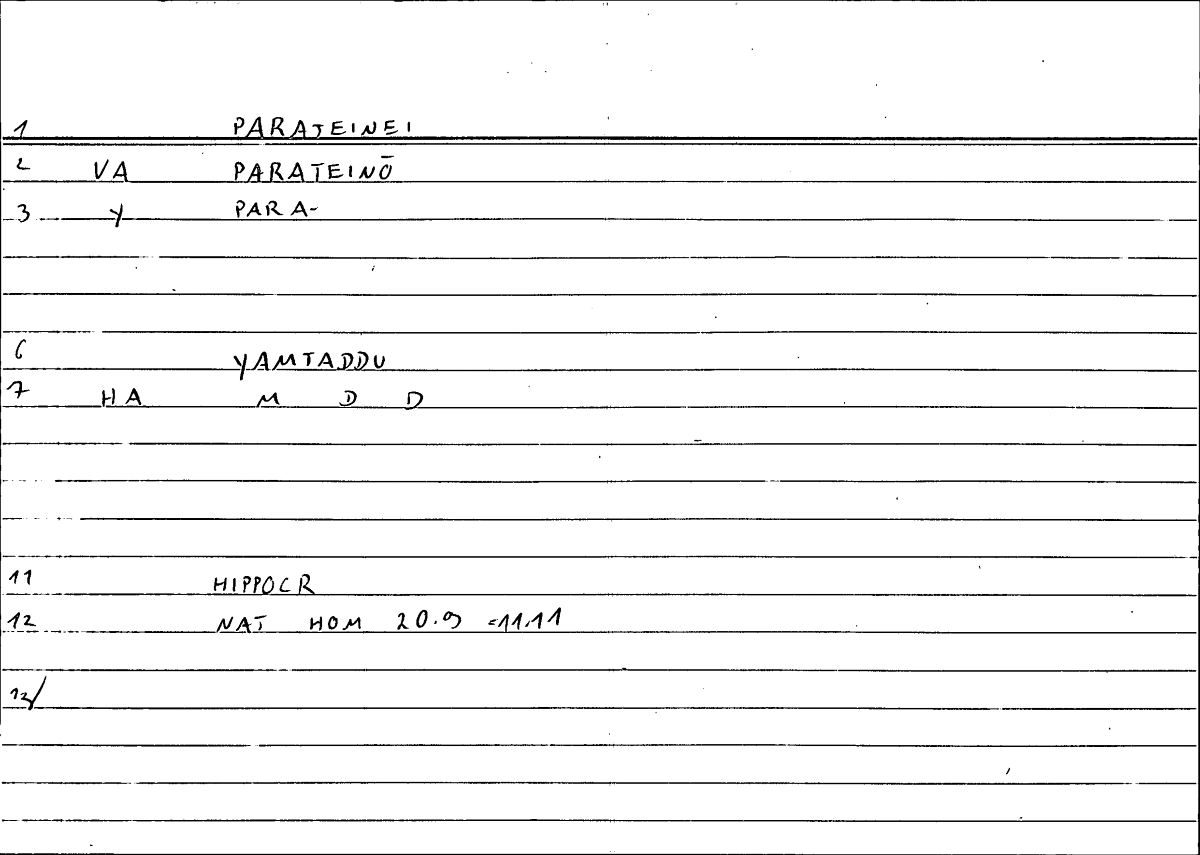 1 PARATEINEI
2 VA PARATEINŌ
3 Y PARA-
6 YAMTADDU
7 HA M D D
11 HIPPOCR
12 NAT HOM 20.9 =11.11
13/